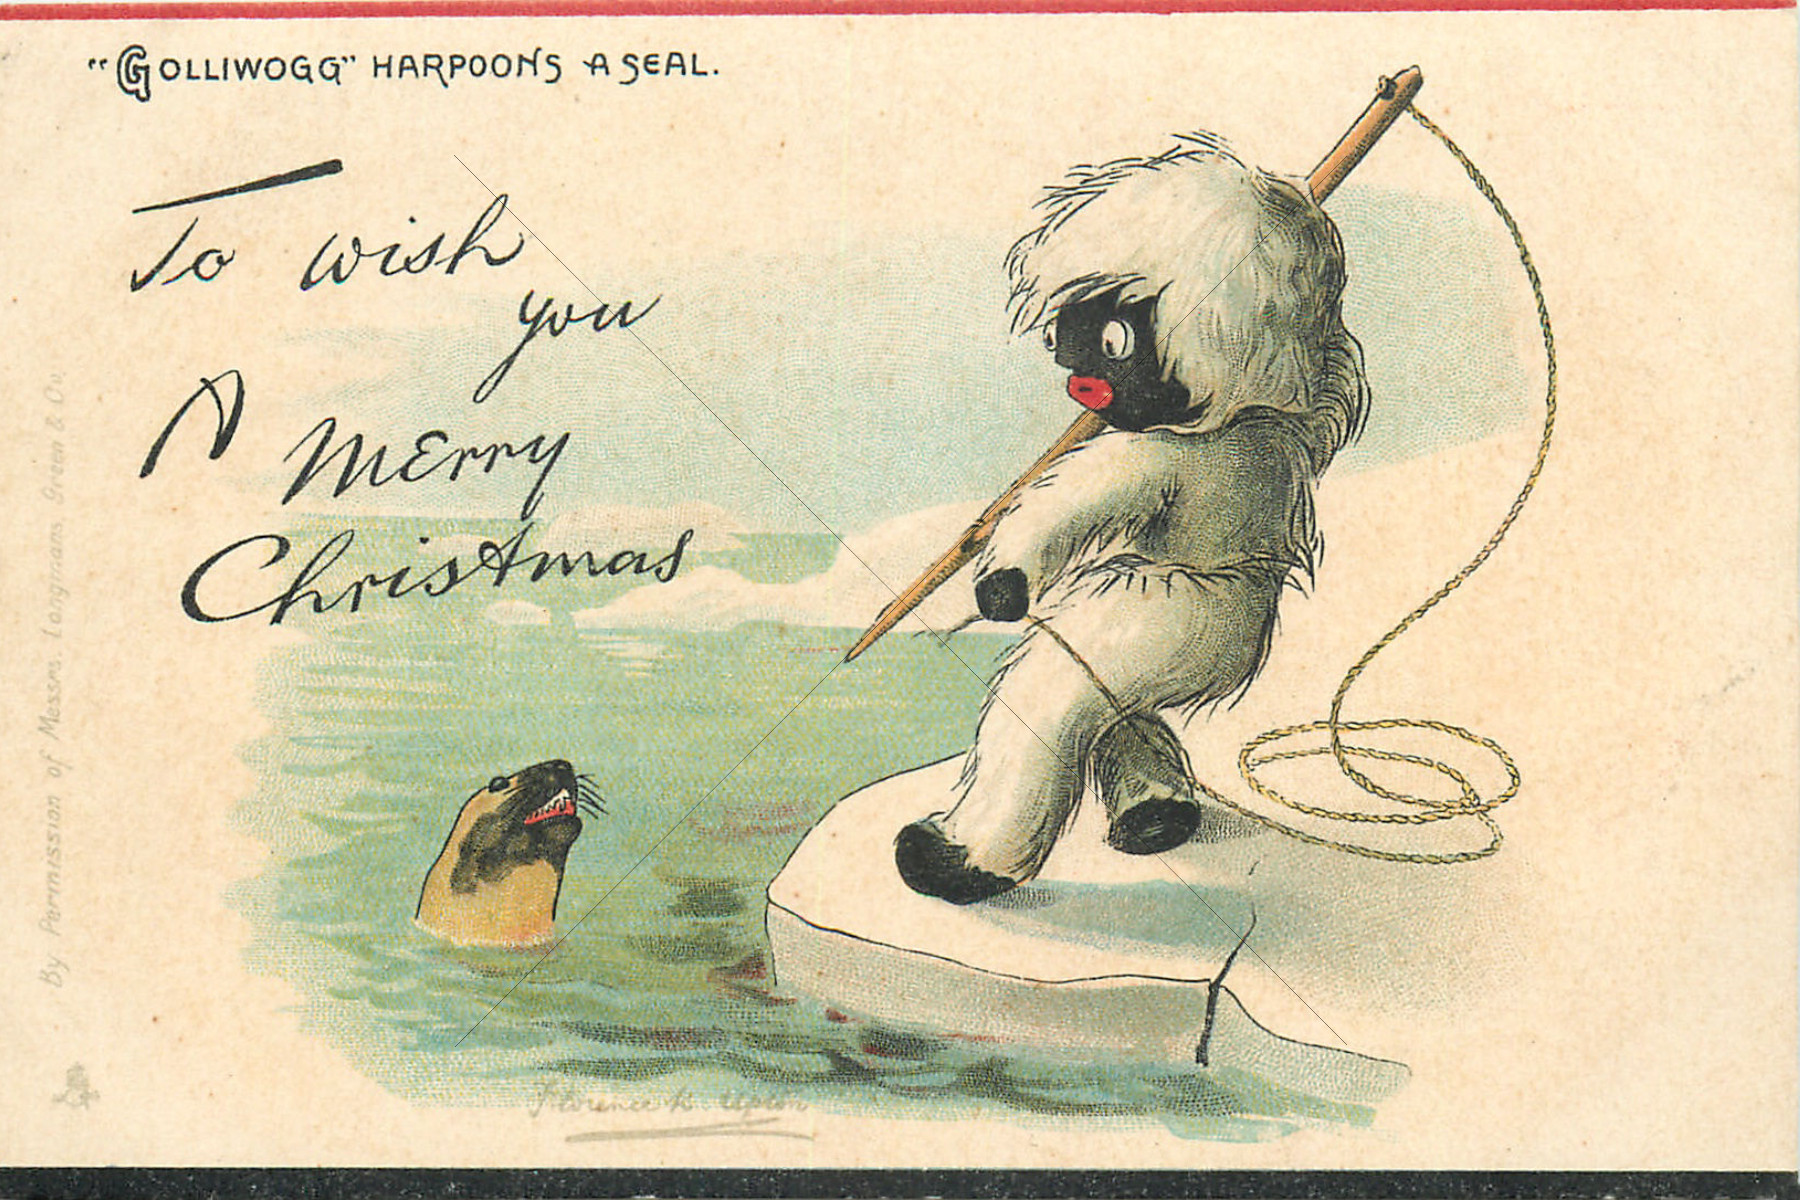 "GOLLIWOGG" HARPOONS A SEAL.
To wish
you
A Merry
Christmas
By Permission of Messrs. Longmans Green & Co.
Florence K. Upton